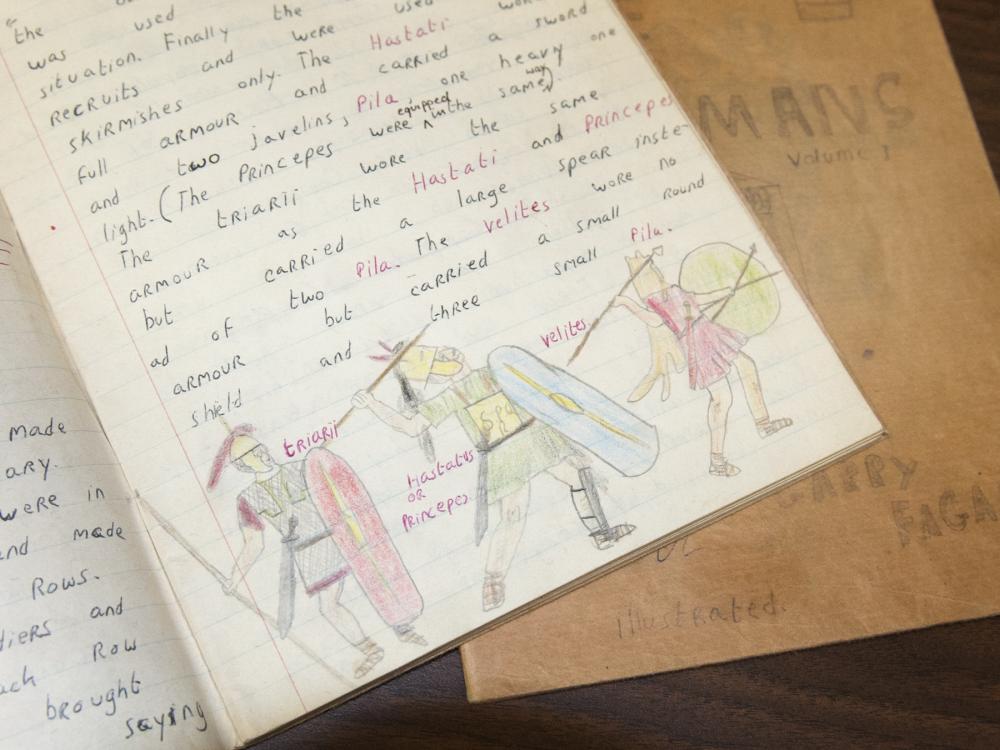 the
was used
situation. Finally the
recruits and were used
skirmishes only. The Hastati wor
full armour and carried a sword
and two javelins, Pila one heavy one
light. (The Princepes were equipped in the same way).
The triarii wore the same
armour as the Hastati and Princepes
but carried a large spear inste-
ad of two Pila. The velites wore no
armour but carried a small round
shield and three small Pila.
velites
triarii
Hastatus
OR
Princepes
made
ary.
were in
and made
Rows.
diers and
ach Row
brought
saying
MANS
Volume 1
GARRY
FAGA
illustrated.